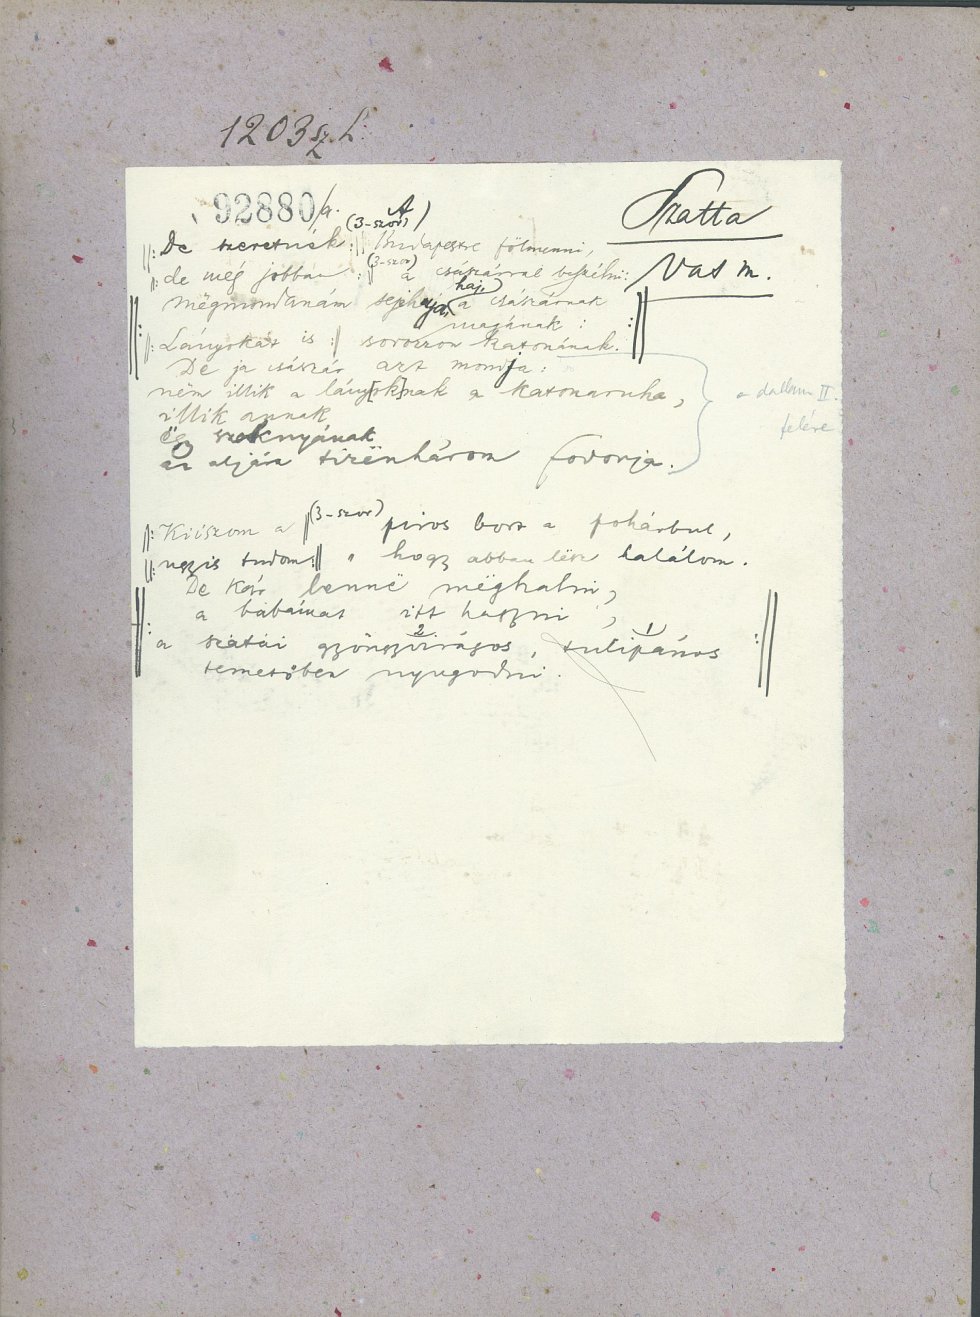 1203 sz. L.
92880/a.
Szatta
Vas m.
A
(3-szor)
||: De szeretnék :|| Budapestre fölmenni,
(3-szor)
||: de még jobban :|| a császárral beszélni:
haj,
mëgmondanám sejhaja, a császárnak
magának :
||: Lányokat is :|| sorozzon katonának. :||
De ja császár azt mondja:
nëm illik a lány[ok]nak a katonaruha,
illik annak
ëg szoknyának
az aljára tizënhárom fodorja.
a dallam II.
felére
(3-szor)
||: Kiiszom a || piros bort a pohárbul,
||: ugyis tudom :|| hogy abban lësz halálom.
De kár bennë mëghalni,
a babámat itt hagyni,
2 1
||: a szatai gyöngyvirágos, tulipános :||
temetőben nyugodni.